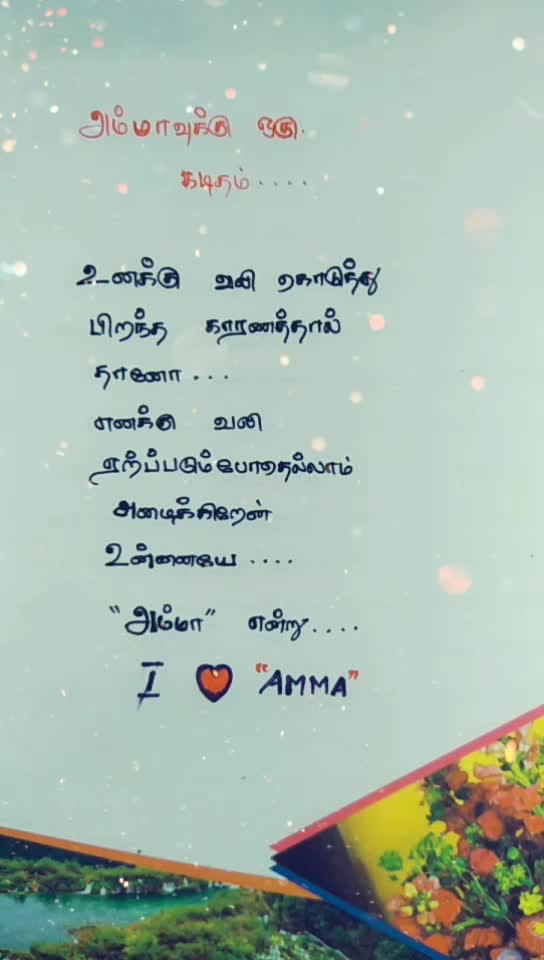 அம்மாவுக்கு ஒரு.
கடிதம்....
உனக்கு வலி கொடுத்து
பிறந்த காரணத்தால்
தானோ...
எனக்கு வலி
ஏற்ப்படும்போதெல்லாம்
அழைக்கிறேன்
உன்னையே....
"அம்மா" என்று....
I ❤ "AMMA"